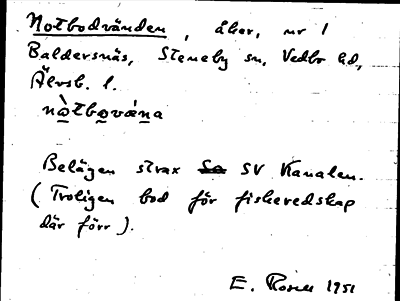 Notbodvänden, åker, nr 1
Baldersnäs, Steneby sn, Vedbo hd,
Älvsb. l.
nòtbo̲vána
Belägen strax SV Kanalen.
(Troligen bod för fiskeredskap
där förr).
E. Rosell 1951